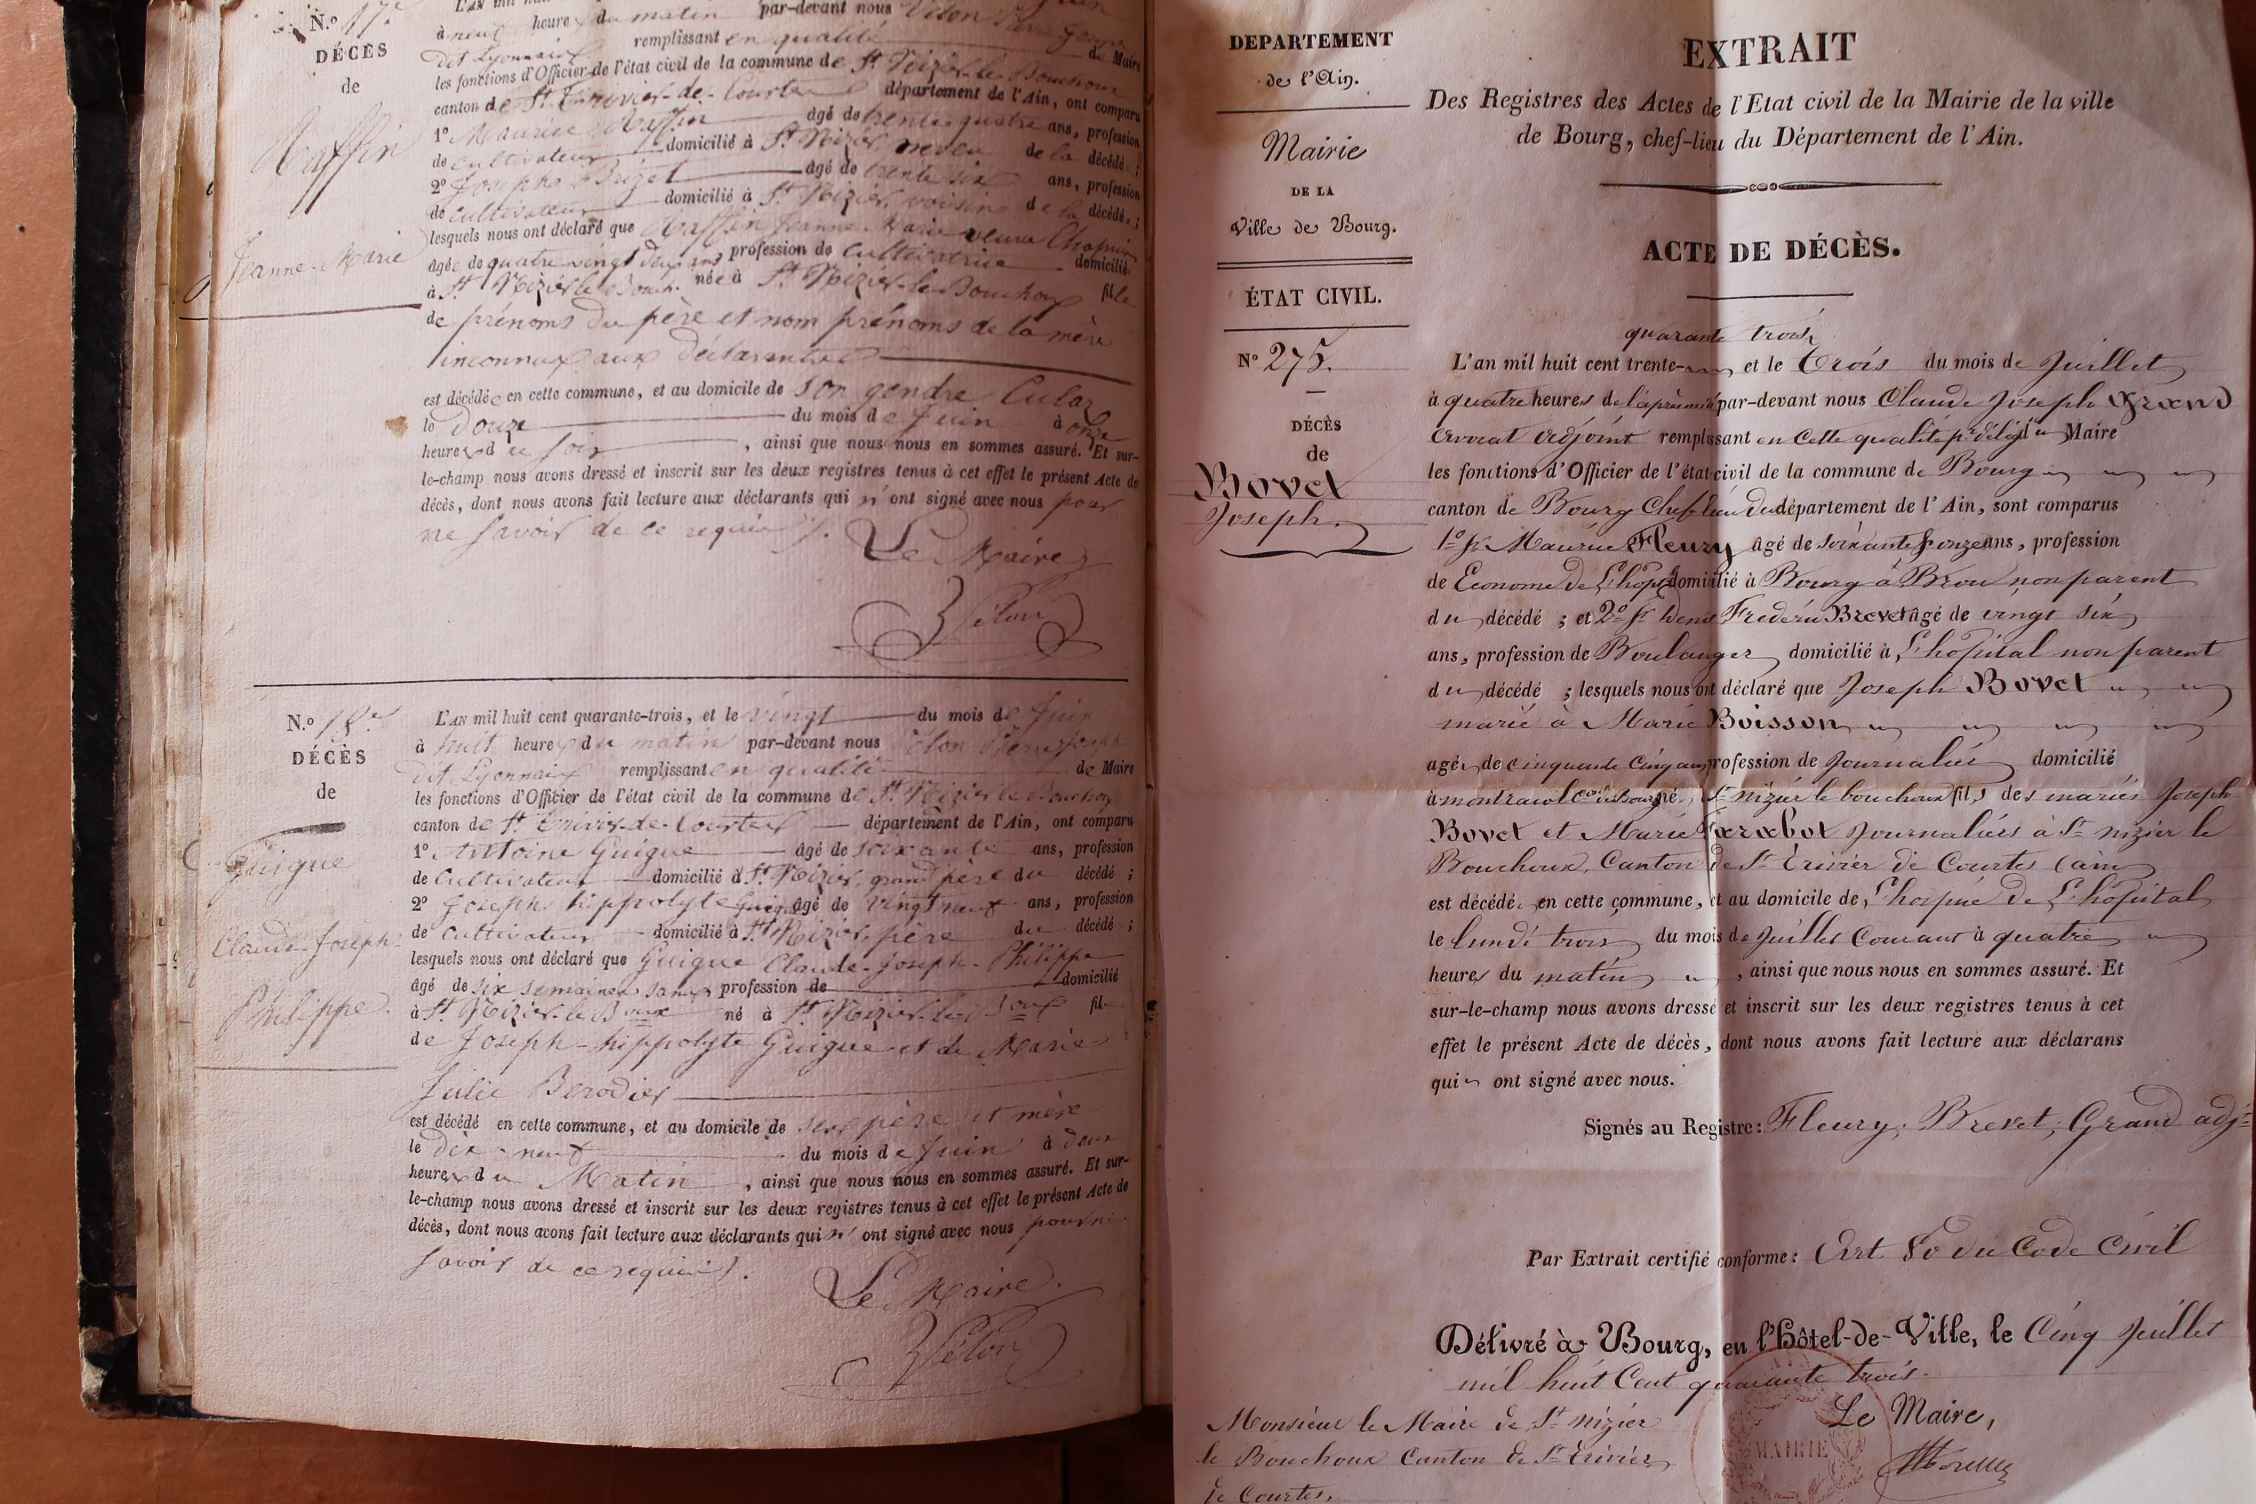 N.o 17.e
DÉCÈS
de
Maffin
Jeanne-Marie
à neuf heures du matin par-devant nous Vélon
dit Lyonnais remplissant en qualité de Maire
les fonctions d'Officier de l'état civil de la commune de St. Nizier-le-Bouchoux
canton de St. Trivier-de-Courtes département de l'Ain, ont comparu
1o Maurice Maffin âgé de trente quatre ans, profession
de cultivateur domicilié à St. Nizier neveu de la décédée;
2o Joseph âgé de trente six ans, profession
de cultivateur domicilié à St. Nizier, voisin de la décédée;
lesquels nous ont déclaré que Maffin Jeanne-Marie veuve
âgée de quatre vingt deux ans profession de cultivatrice domicilié
à St. Nizier-le-Bouch. née à St. Nizier-le-Bouchoux fille
de prénoms du père et nom prénoms de la mère
inconnus aux déclarants
est décédée en cette commune, et au domicile de son gendre
le douze du mois de Juin à onze
heures du soir, ainsi que nous nous en sommes assuré. Et sur-
le-champ nous avons dressé et inscrit sur les deux registres tenus à cet effet le présent Acte de
décès, dont nous avons fait lecture aux déclarants qui n'ont signé avec nous pour
ne savoir de ce requis.
Le Maire
Vélon
N.o 18.e
DÉCÈS
de
Guigue
Claude-Joseph-
Philippe.
L'AN mil huit cent quarante-trois, et le vingt du mois de Juin
à huit heures du matin par-devant nous Vélon Pierre Joseph
dit Lyonnais remplissant en qualité de Maire
les fonctions d'Officier de l'état civil de la commune de St. Nizier le Bouchoux
canton de St. Trivier-de-Courtes département de l'Ain, ont comparu
1o Antoine Guigue âgé de soixante ans, profession
de cultivateur domicilié à St. Nizier, grand père du décédé;
2o Joseph hippolyte Guigue âgé de vingt neuf ans, profession
de cultivateur domicilié à St. Nizier, père du décédé;
lesquels nous ont déclaré que Guigue Claude-Joseph-Philippe
âgé de six semaines sans profession de domicilié
à St. Nizier-le-Boux né à St. Nizier-le-Boux fils
de Joseph-hippolyte Guigue et de Marie
Julie Berodier
est décédé en cette commune, et au domicile de ses père et mère
le dix-neuf du mois de Juin à deux
heures du Matin, ainsi que nous nous en sommes assuré. Et sur-
le-champ nous avons dressé et inscrit sur les deux registres tenus à cet effet le présent Acte de
décès, dont nous avons fait lecture aux déclarants qui n'ont signé avec nous pour ne
savoir de ce requis.
Le Maire.
Vélon
DEPARTEMENT
de l'Ain.
Mairie
DE LA
Ville de Bourg.
ÉTAT CIVIL.
No 275.
DÉCÈS
de
Bovet
Joseph.
EXTRAIT
Des Registres des Actes de l'Etat civil de la Mairie de la ville
de Bourg, chef-lieu du Département de l'Ain.
ACTE DE DÉCÈS.
quarante trois
L'an mil huit cent trente- et le trois du mois de Juillet
à quatre heures de l'après midi par-devant nous Claude Joseph Grand
avocat adjoint remplissant en cette qualité Maire
les fonctions d'Officier de l'état civil de la commune de Bourg
canton de Bourg Chef lieu du département de l'Ain, sont comparus
1o Sr. Maurice Fleury âgé de soixante onze ans, profession
de Econome de L'hôpital domicilié à Bourg à Brou, non parent
du décédé; et 2o Sr. Fréderic Brevet âgé de vingt six
ans, profession de Boulanger domicilié à L'hôpital non parent
du décédé; lesquels nous ont déclaré que Joseph Bovet
marié à Marie Boisson
agé de cinquante cinq ans, profession de Journalier domicilié
à montracol né à St. nizier le bouchoux fils des mariés Joseph
Bovet et Marie journaliers à St. nizier le
Bouchoux, Canton de St. Trivier de Courtes (ain)
est décédé en cette commune, et au domicile de L'hospice de L'hôpital
le lundi trois du mois de Juillet Courant à quatre
heures du matin, ainsi que nous nous en sommes assuré. Et
sur-le-champ nous avons dressé et inscrit sur les deux registres tenus à cet
effet le présent Acte de décès, dont nous avons fait lecture aux déclarans
qui ont signé avec nous.
Signés au Registre: Fleury, Brevet, Grand adjt.
Par Extrait certifié conforme: Art. 80 du Code Civil
Délivré à Bourg, en l'Hôtel-de-Ville, le Cinq Juillet
mil huit Cent quarante trois.
Le Maire,
MAIRIE
Monsieur le Maire de St. nizier
le Bouchoux Canton de St. Trivier
de Courtes.